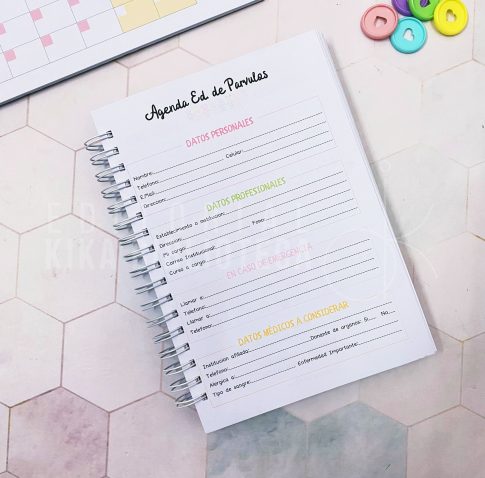 Agenda Ed. de Parvulas
DATOS PERSONALES
Nombre:
Telefono: Celular:
E.Mail:
Direccion:
DATOS PROFESIONALES
Establecimiento o institucion:
Direccion: Fono:
Mi cargo:
Correo Institucional:
Curso a cargo:
EN CASO DE EMERGENCIA
Llamar a:
Telefono:
Llamar a:
Telefono:
DATOS MÉDICOS A CONSIDERAR
Institucion afiliada: Donante de organos: Si No
Telefono:
Alergica a: Enfermedad Importante:
Tipo de sangre: